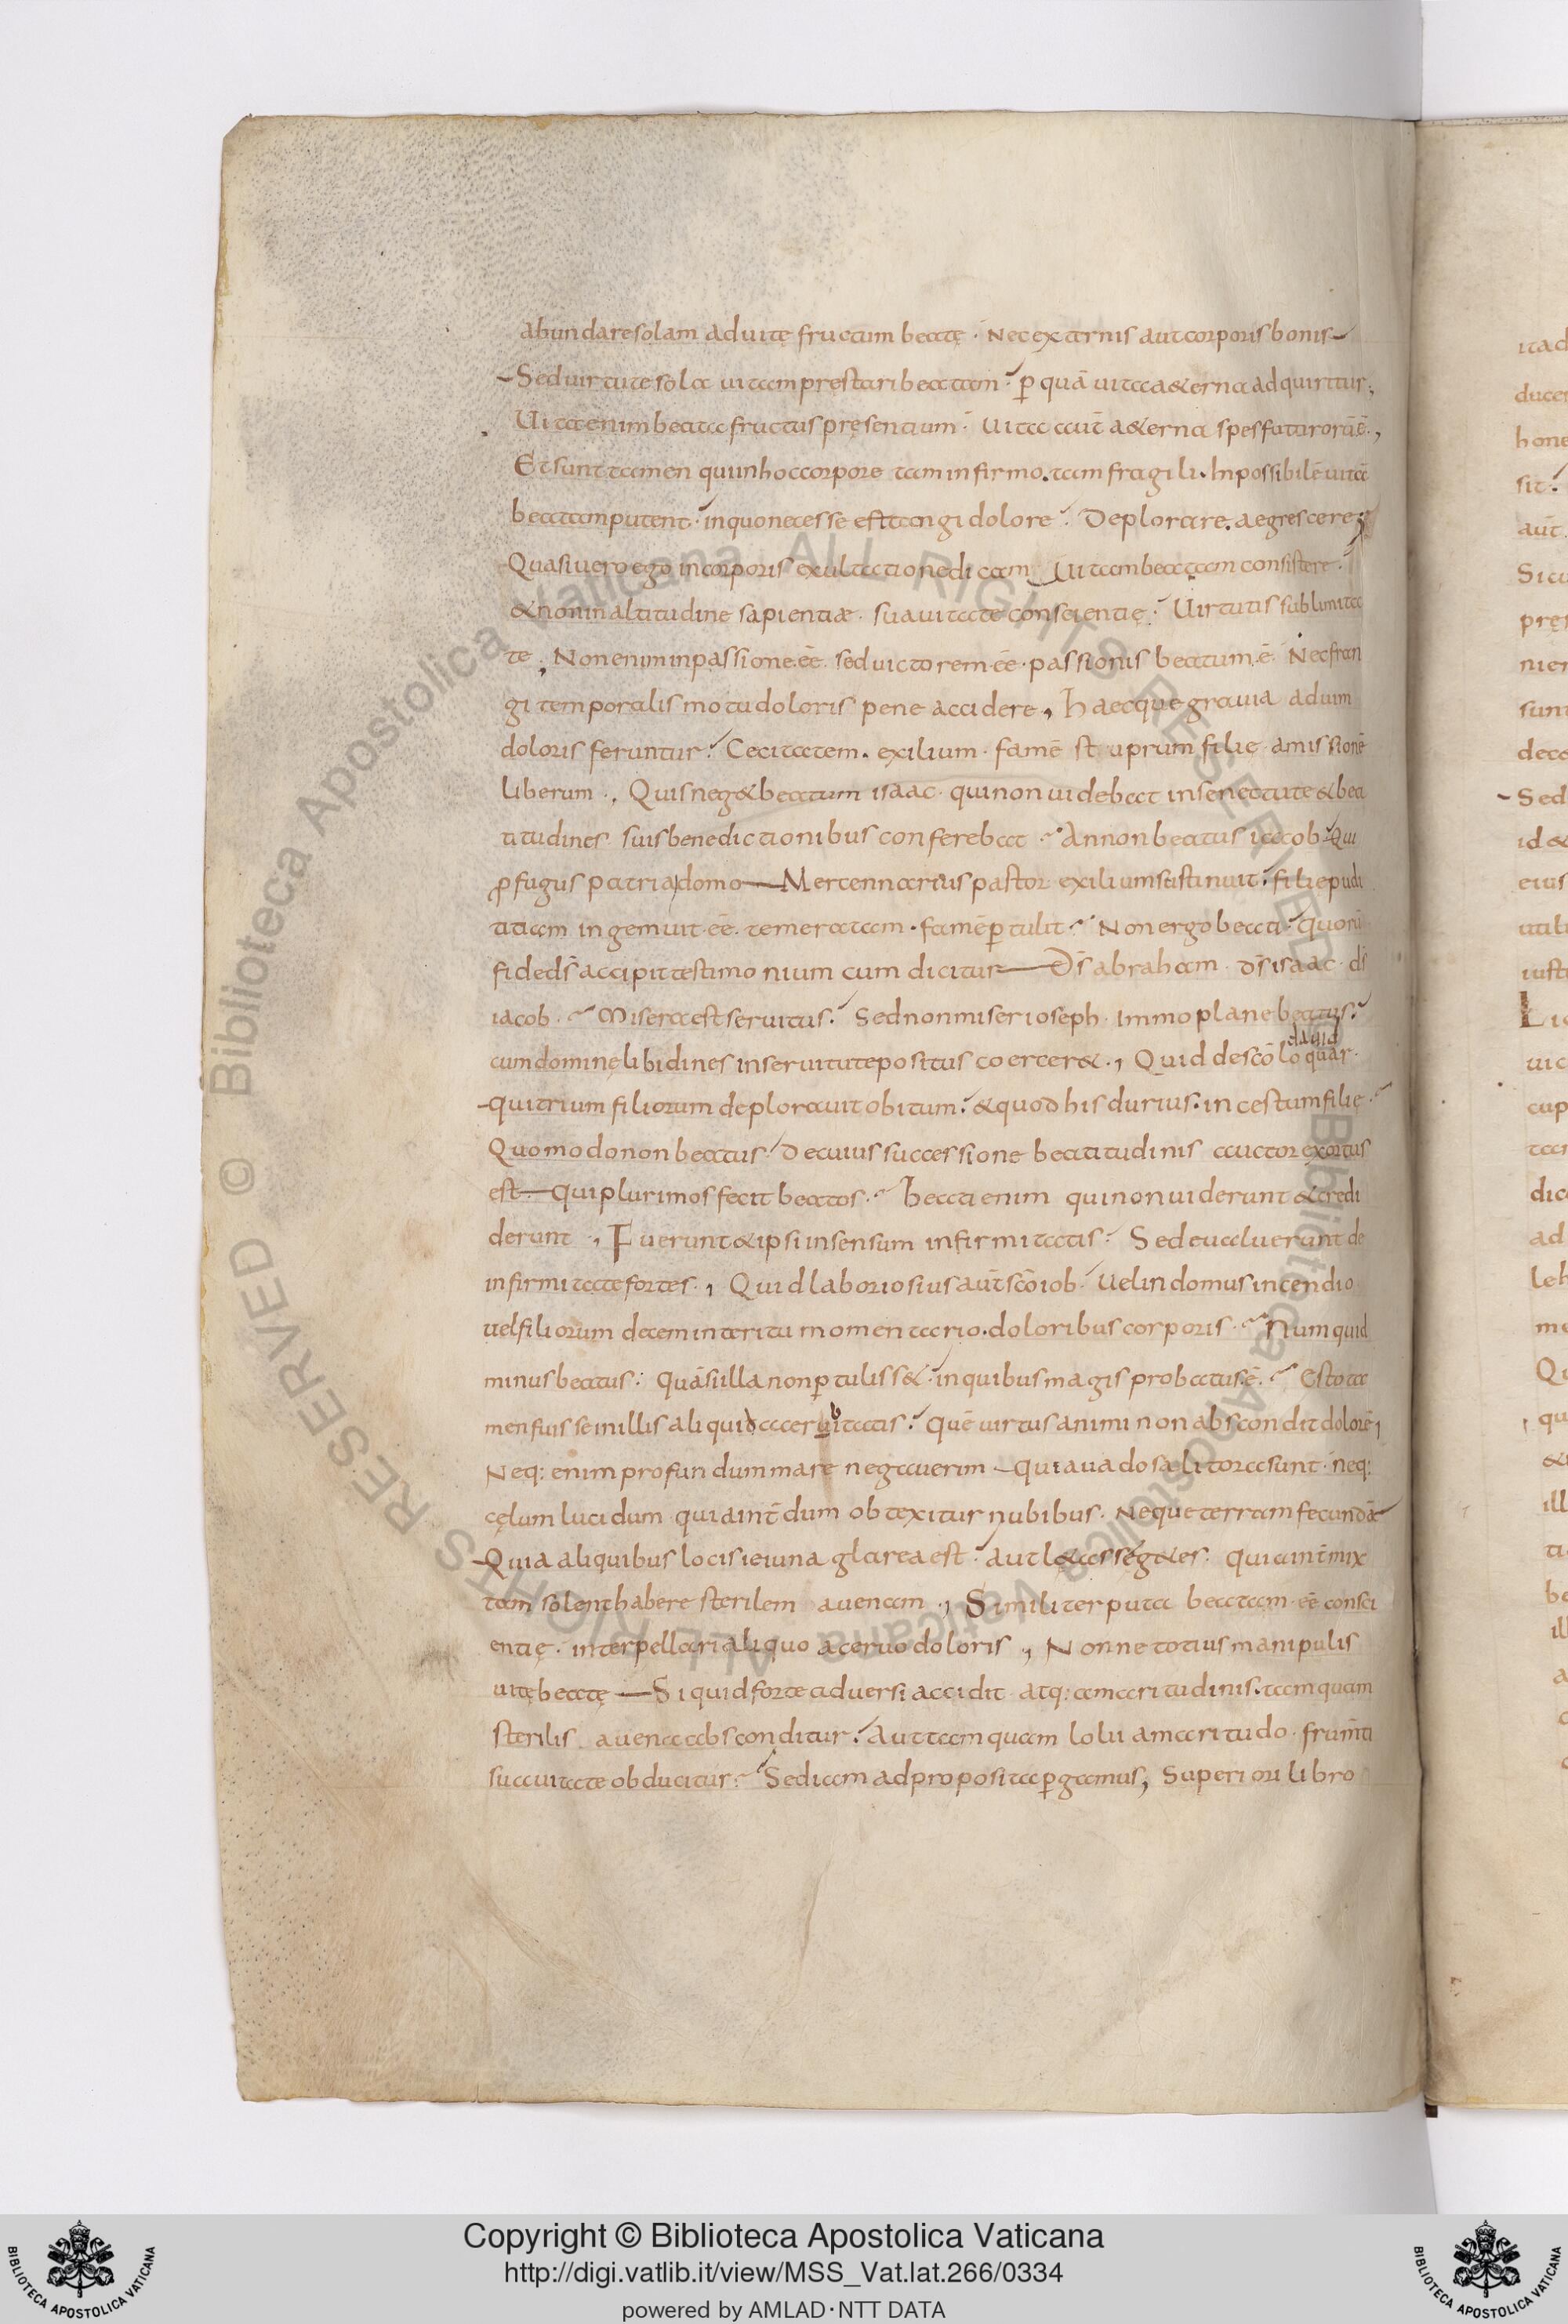 abundare solam ad uitę fructum beatę · Nec externis aut corporis bonis
Sed uirtute sola uitam pręstari beatam · ꝑ quā uita a&erna adquiritur ;
Uita enim beata fructus pręsentium · Uita aut̄ a&erna spes futurorū ē ·,
Et sunt tamen qui in hoc corpore tam infirmo . tam fragili . Inpossibilē uitā
beatam putent · in quo necesse est angi dolore · Deplorare . aegrescere ;
Quasi uero ego in corporis exultatione dicam Uitam beatam consistere ·
& non in altitudine sapientiæ · suauitate conscientię · Uirtutis sublimita
te , Non enim in passione · eē · sed uictorem · eē · passionis beatum · ē · Nec fran
gi temporalis motu doloris pene accidere , haec que grauia ad uim
doloris feruntur · Cecitatem . exilium · famē stuprum filię · amissionē
liberum ·, Quis neg& beatum isaac · qui non uidebat in senectute & bea
titudines suis benedictionibus conferebat · An non beatus iacob · Qui
ꝓfugus patria domo — Mercennarius pastor exilium sustinuit · filię pudi
titiam ingemuit · eē · temeratam · famē ꝑtulit · Non ergo beati · quorū
fide d̄s accipit testimonium cum dicitur — D̄s abraham · d̄s isaac · d̄s
iacob · Misera est seruitus · Sed non miser ioseph · immo plane beatus ·
dauid
cum dominę libidines in seruitute positus coercer& ·, Quid de scō loquar ·
qui trium filiorum deplorauit obitum · & quod his durius · incestum filię ·
Quomodo non beatus · De cuius successione beatitudinis auctor exortus
est — qui plurimos fecit beatos · beati enim qui non uiderunt & credi
derunt ·, Fuerunt & ipsi in sensum infirmitatis · Sed eualuerunt de
infirmitate fortes ·, Quid laboriosius aut̄ scō iob · Uel in domus incendio
uel filiorum decem interitu momentario . doloribus corporis · Num quid
minus beatus · quā si illa non ꝑtuliss& · in quibus magis probatus · ē · Esto ta
men fuisse in illis aliquid aceruitatis · quē uirtus animi non abscondit dolorē ,
Neq: enim profundum mare negauerim — quia uadosa litora sunt · neq:
cęlum lucidum · quia int̄dum obtexitur nubibus · Neque terram fecundā
Quia aliquibus locis ieiuna glarea est · Aut l&as seg&es · quia int̄ mix
tam solent habere sterilem auenam ·, Similiter puta beatam · eē consci
entię · interpellari aliquo aceruo doloris , Nonne totius manipulis
uitę beatę — Si quid forte aduersi accidit atq: amaritudinis . tamquam
sterilis auena absconditur · Aut tamquam lolii amaritudo · frumti
suauitate obducitur · Sed iam ad proposita ꝑgamus , Superiori libro
Copyright © Biblioteca Apostolica Vaticana
http://digi.vatlib.it/view/MSS_Vat.lat.266/0334
powered by AMLAD·NTT DATA